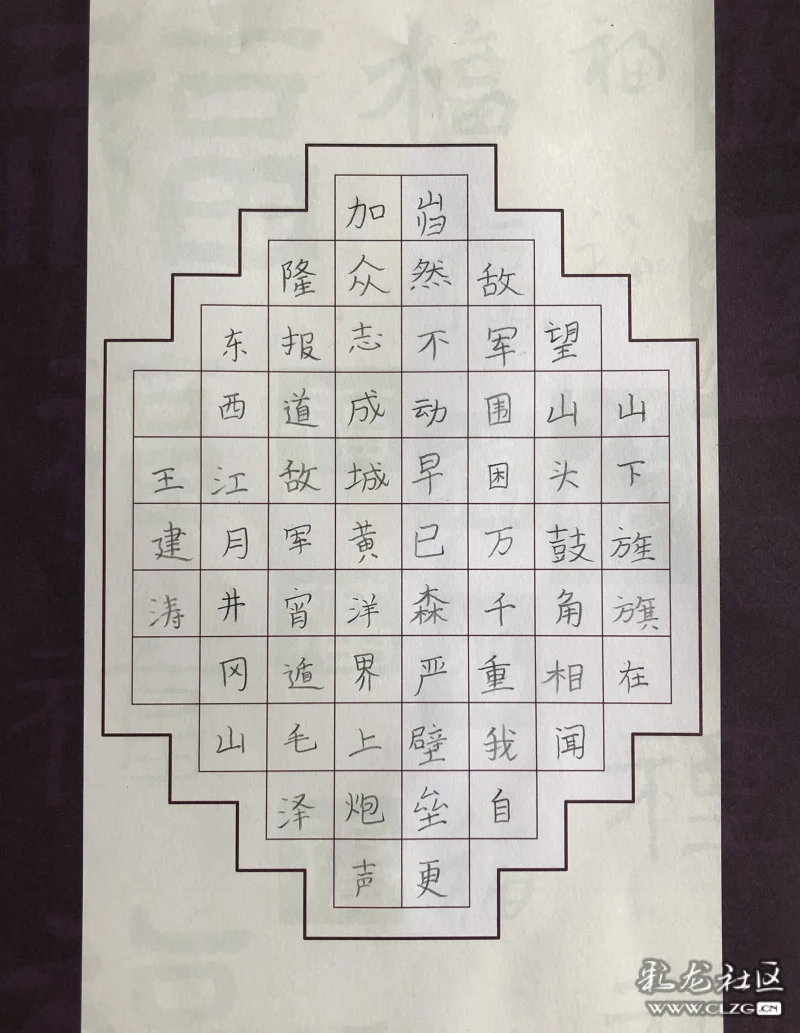 山下旌旗在
望山头鼓角相闻
敌军围困万千重我自
岿然不动早已森严壁垒更
加众志成城黄洋界上炮声
隆报道敌军宵遁毛泽
东西江月井冈山
王建涛
彩龙社区
WWW.CLZG.CN